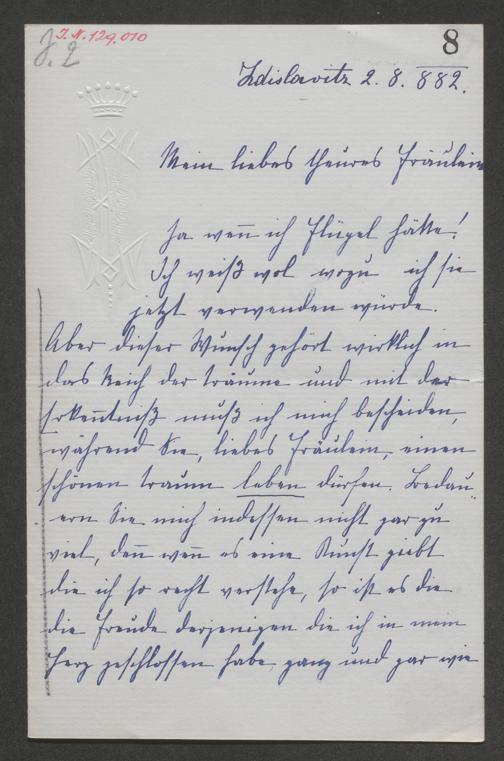 J. N. 129.010
8
Zdislavitz 2. 8. 882.
Mein liebes theures Fräulein
Ja wen̅ ich Flügel hätte!
Ich weiß wol wozu ich sie
jetzt verwenden würde.
Aber dieser Wunsch gehört wirklich in
das Reich der Träume und mit der
Erken̅tniß muß ich mich bescheiden,
während Sie, liebes Fräulein, einen
schönen Traum leben dürfen. Bedau-
ern Sie mich indessen nicht gar zu
viel, den̅ wen̅ es eine Kunst giebt
die ich so recht verstehe, so ist es die
die Freude derjenigen die ich in mein
Herz geschlossen habe ganz und gar wie